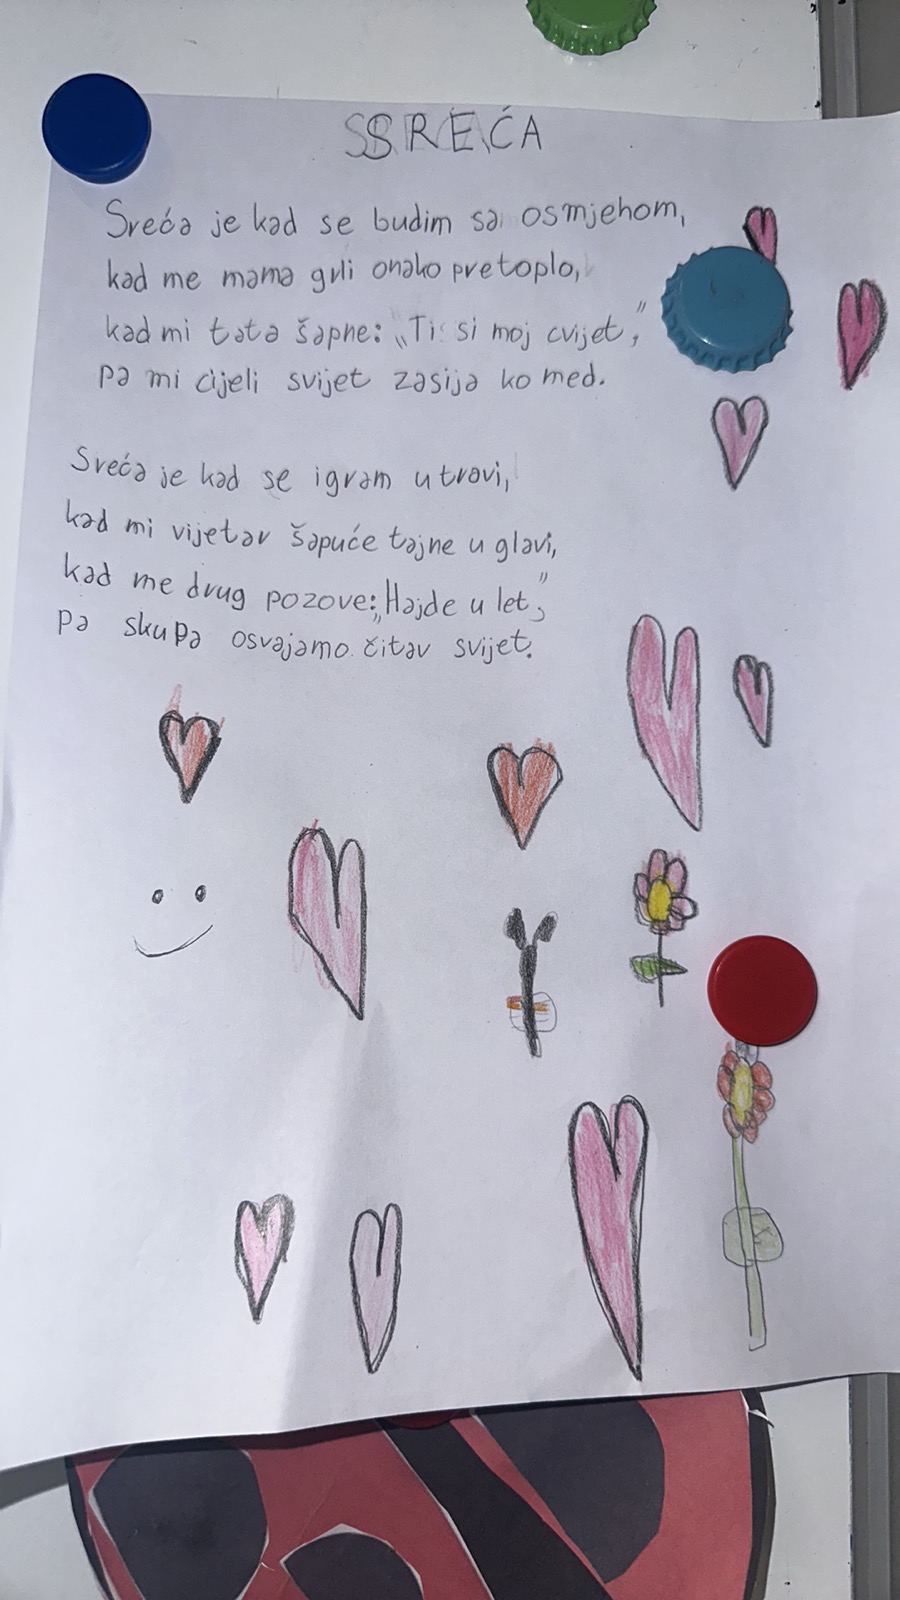 SREĆA
Sreća je kad se budim sa osmjehom,
kad me mama grli onako pretoplo,
kad mi tata šapne: „Ti si moj cvijet”,
pa mi cijeli svijet zasija ko med.
Sreća je kad se igram u travi,
kad mi vijetar šapuće tajne u glavi,
kad me drug pozove: „Hajde u let”,
pa skupa osvajamo čitav svijet.